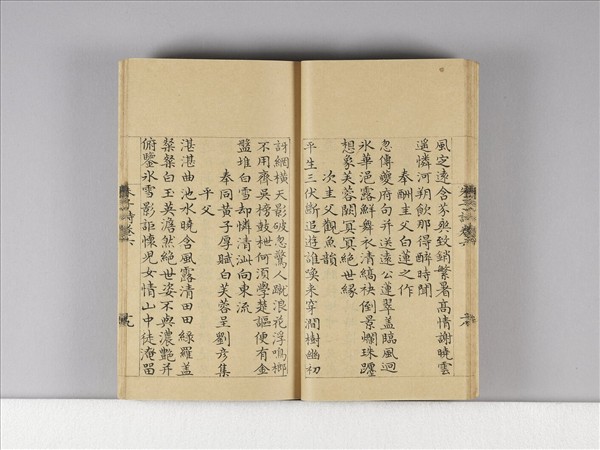 風定遠含芬與致銷繁暑高情謝曉雲
遥憐河朔飲那得醉時聞
奉酬圭父白蓮之作
忽傳夔府句并送遠公蓮翠蓋臨風迥
冰華浥露鮮舞衣清縞袂倒景爛珠躔
想象芙蓉闕冥冥絶世緣
次圭父觀魚韻
平生三伏斷追遊誰喚来穿澗樹幽初
訝網横天影破忽驚人蹴浪花浮鳴榔
不用齊吳榜鼓枻何須學楚謳便有金
盤堆白雪却憐清泚向東流
奉同黄子厚賦白芙蓉呈劉彦集
平父
湛湛曲池水曉含風露清田田緑羅蓋
粲粲白玉英澹然絶世姿不與濃艷并
俯鑒冰雪影詎懷兒女情山中徒淹留